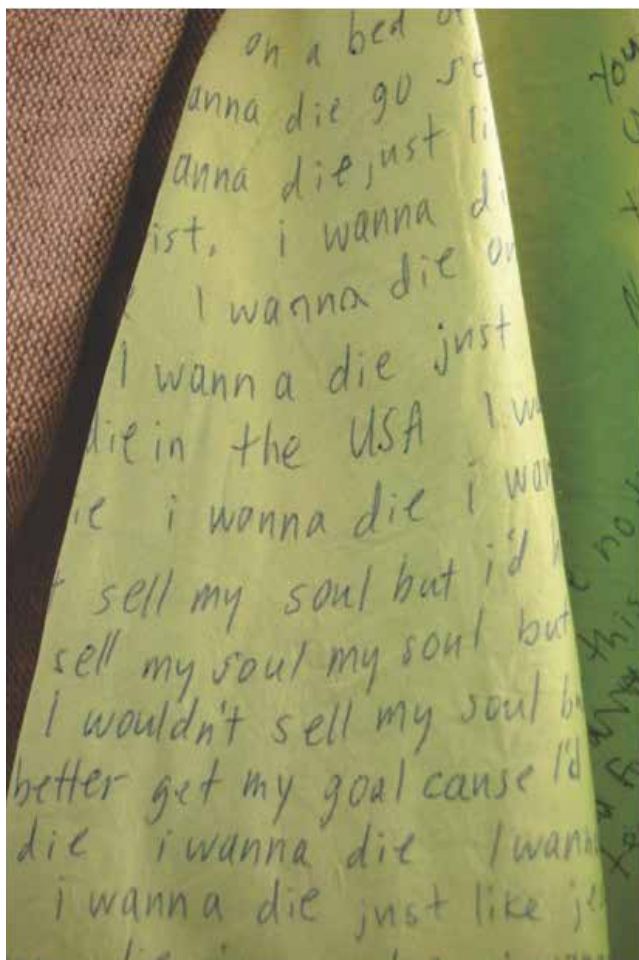 on a bed
anna die go se
anna die, just li
ist, i wanna di
I wanna die on
I wanna die just
die in the USA I w
ie i wanna die i wan
sell my soul but i'd h
sell my soul my soul but
I wouldn't sell my soul b
better get my goal cause I'd
die i wanna die I wann
i wanna die just like je
You
no
this